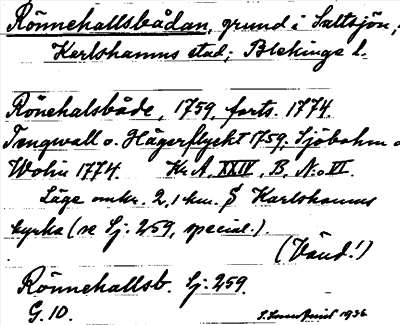 Rönnehallsbådan, grund i Saltsjön,
Karlshamns stad; Blekinge l.
Rönehalsbåde, 1759, forts. 1774.
Tengwall o. Hägerflyckt 1759; Sjöbohm o
Wolin 1774. Kr. A. XXIV, B, N:o VI.
Läge omkr. 2,1 km. S Karlshamns
kyrka (se Sj. 259, special.).
(Vänd!)
Rönnehallsb. Sj. 259.
G. 10. 1936